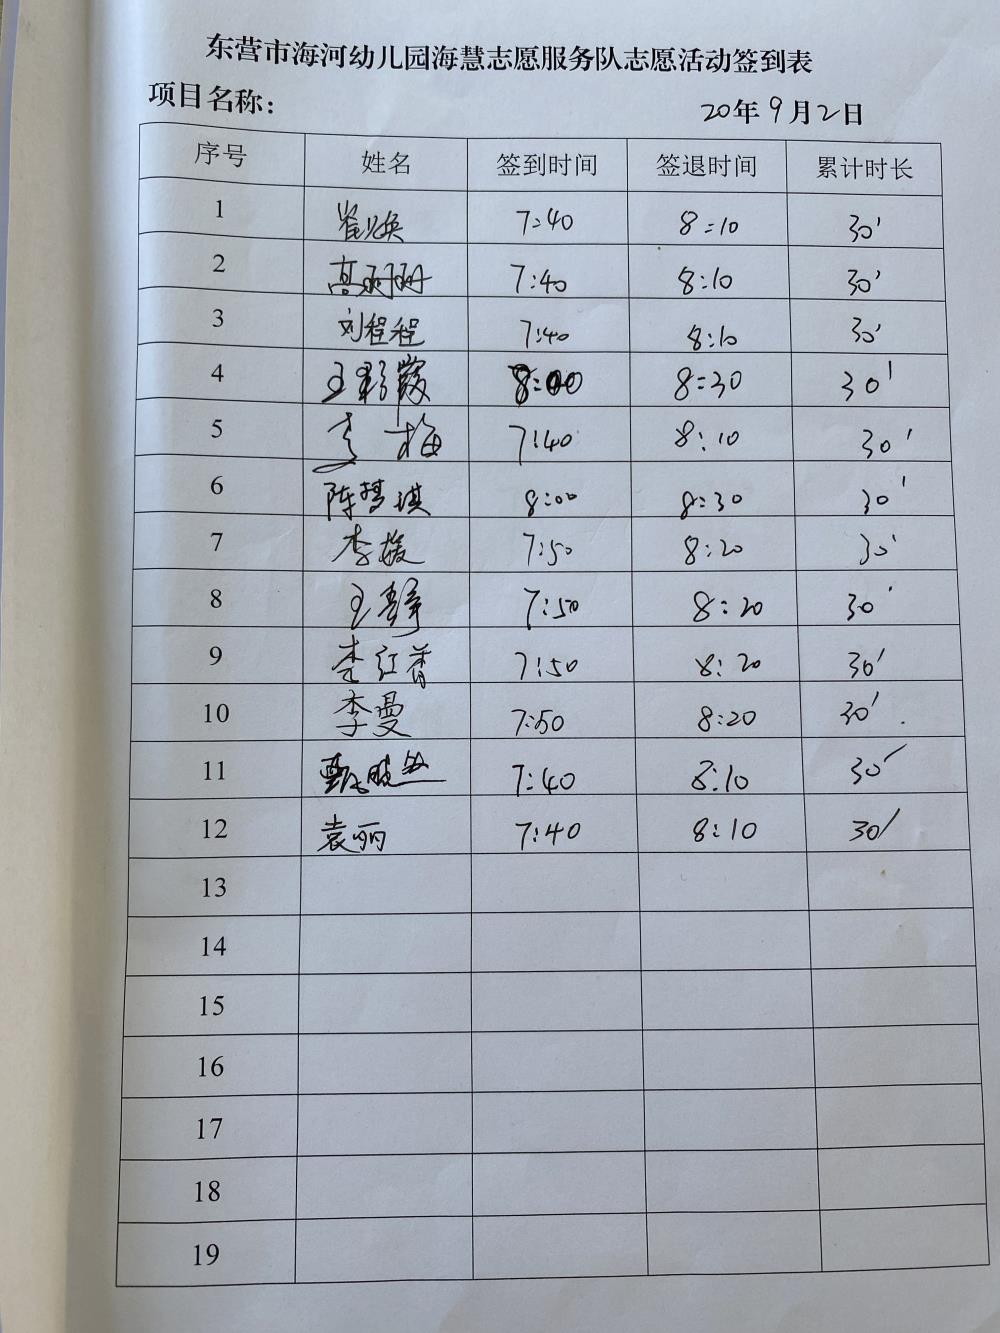 东营市海河幼儿园海慧志愿服务队志愿活动签到表
项目名称： 20年9月2日
序号 姓名 签到时间 签退时间 累计时长
1 崔焕 7:40 8:10 30'
2 高珊珊 7:40 8:10 30'
3 刘程程 7:40 8:10 30'
4 王彩霞 8:00 8:30 30'
5 李梅 7:40 8:10 30'
6 陈梦琪 8:00 8:30 30'
7 李媛 7:50 8:20 30'
8 王静 7:50 8:20 30'
9 李红菁 7:50 8:20 30'
10 李曼 7:50 8:20 30'
11 甄晓 7:40 8:10 30'
12 袁丽 7:40 8:10 30'
13
14
15
16
17
18
19